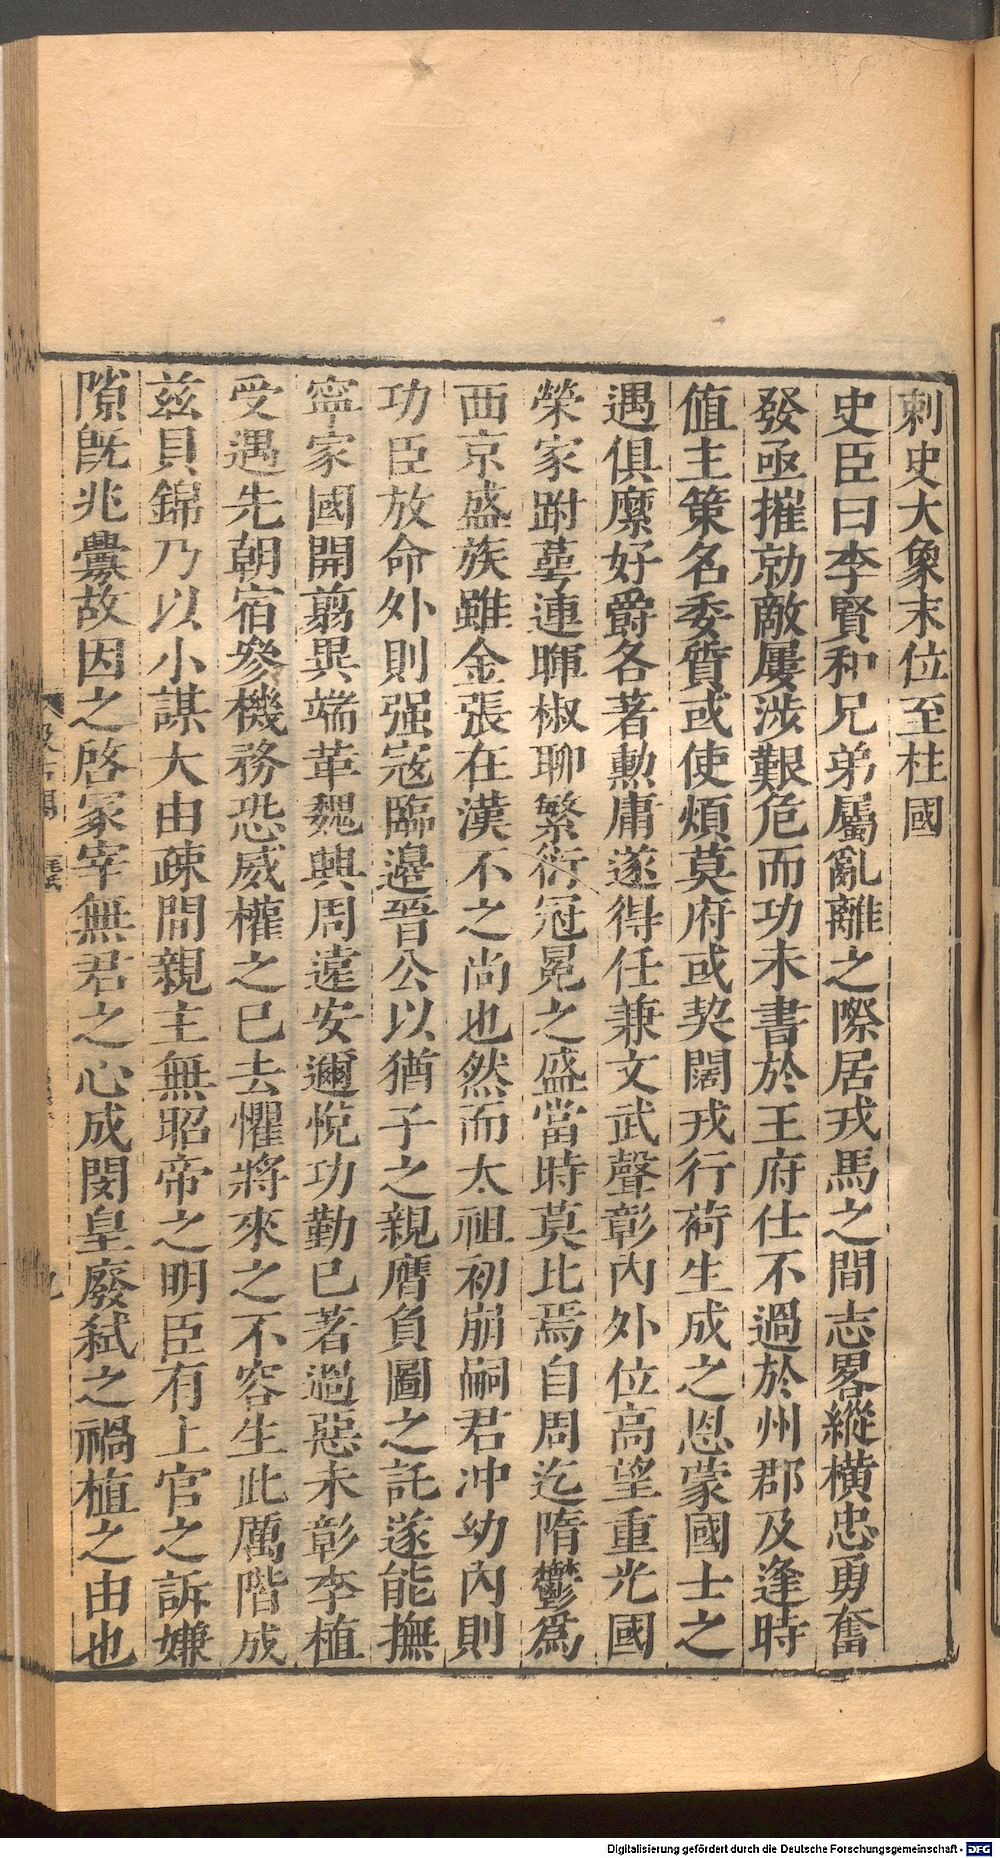 刺史大象末位至柱國
史臣曰李賢和兄弟屬亂離之際居戎馬之間志畧縱橫忠勇奮
發亟摧勍敵屢涉艱危而功未書於王府仕不過於州郡及逢時
値主策名委質或使煩莫府或契闊戎行荷生成之恩蒙國士之
遇俱縻好爵各著勳庸遂得任兼文武聲彰內外位高望重光國
榮家跗萼連暉椒聊繁衍冠冕之盛當時莫比焉自周迄隋鬱爲
西京盛族雖金張在漢不之尚也然而太祖初崩嗣君冲幼內則
功臣放命外則强寇臨邊晉公以猶子之親膺負圖之託遂能撫
寧家國開翦異端革魏興周遠安邇悅功勤已著過惡未彰李植
受遇先朝宿參機務恐威權之已去懼將來之不容生此厲階成
茲貝錦乃以小謀大由疎間親主無昭帝之明臣有上官之訴嫌
隙旣兆釁故因之啓冢宰無君之心成閔皇廢弑之禍植之由也
Digitalisierung gefördert durch die Deutsche Forschungsgemeinschaft - DFG